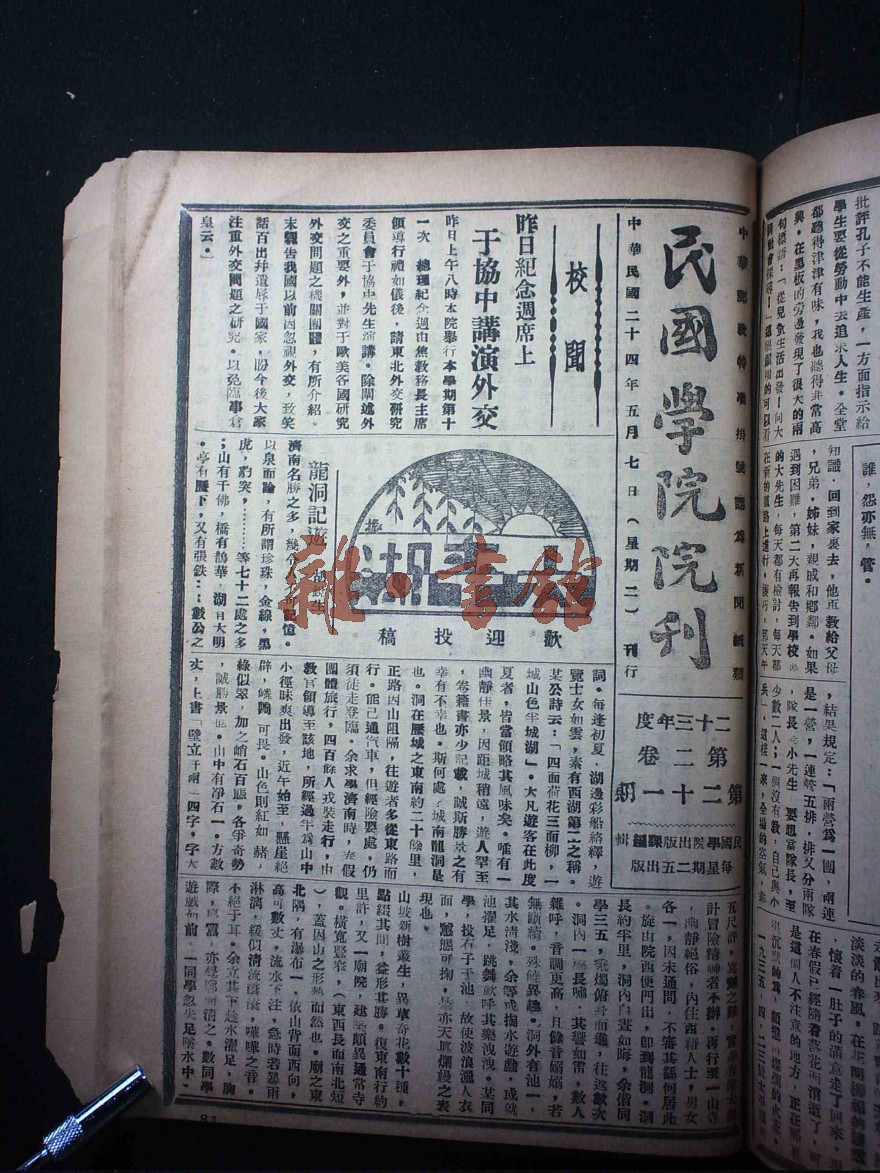 中華郵政特准掛號認為新聞紙類
民國學院院刊
中華民國二十四年五月七日（星期二）刊行
二十三年度
第二卷
第二十一期
民國學院出版課編輯
每星期二五出版
校聞
昨日紀念週席上
于協中講演外交
昨日上午八時本院舉行本學期第十
一次　總理紀念週由焦教務長主席
領導行禮如儀後，請東北外交研究
委員會于協中先生演講。除闡述外
交之重要外，並對于歐美各國研究
外交問題之機關團體，有所介紹。
末縣告我國以前因忽視外交，致笑
話百出幷遺辱于國家，盼今後大家
注重外交問題之研究。以免臨事倉
皇云。
大青湖
歡迎投稿
龍洞記遊
濟南名勝之多，
以泉而論，有所謂珍珠，金線，黑
虎，豹突，………等七十二處之多
；山有千佛，橋有鵲華，湖有大明
。亭有歷下，又有張鉄……數公之
詞。每逢初夏，湖邊彩船絡繹，遊
覽士女如雲，素有西湖第二之稱。
某公詩云：「四面荷花三面柳，一
城山色半城湖」。大凡遊客在此度
夏者，皆當領略其風味矣。唯有一
幽靜佳景，因距城稍遠，遊人罕至
，卷籍書亦少記載，誠斯勝景之有
幸有不幸也。斯何處？城南龍洞是
也。洞在歷城之東南約二十餘里，
正路因山阻隔，往遊者多從東路而
行。能己通汽車，但經險要處，仍
須徒走登臨。余求學濟南時，春假
團體旅行，四百餘人戎裝走行，由
教官領導至該地，所經過半為山中
小徑味爽出發，近午始至，懸崖絕
辟，嶙 可畏。山色則紅如赭，
綠似翠，加之峭石百態。各爭奇勢
，誠勝景也。山中有淨石一。方數
丈，上書「壁立千兩」四字，字大
五尺許，
計冒險精神者不辦。再行至一山寺
，幽靜絕俗，內住西藉人士，男女
各一，因未通問，不審其緣何居此
。旋由院西便門出，卽到龍洞。洞
長約半里，洞內白晝如晦，余偕同
學三五，秉燭俯身而過，往返數次
。洞內一座長嘯，其響如雷，數人
雜呼，音調更高，且餘音嫋嫋，若
無斷續，殊饒異趣。洞外有池一，
其水清淺，余等或掬水遊戲，或就
池濯足，跳舞歡呼其樂洩洩。某同
學，投石子于池，故使波浪濺人衣
面，憨態可掬，景亦天真爛漫之表
現也。
山坡新樹叢生，異草奇花數十種，
點綴其間，益形其勝。復東南行約
里許，又一廟院，建築頗異通常寺
觀。橫寬豎窄，（東西長而南北短
），蓋因山之形勢而然也。廟之東
北隅，有瀑布一，依山背面西向，
高可數丈。流水下注，急時若暴雨
淋漓，緩似清流滾滾，嘩嘩之音。
不絕于耳。余立其下趁水濯足，胸
際，塵囂，亦覺滌而清之。數同學
遊戲如前，一同學忽失足墜水中。
81
批評孔子不能生產，一方面指示給
學生要從勞動中去追求人生。全堂
都聽得津津有味，我也聽得非常高
興。在黑板的旁邊發現了很大的兩
句標語：「從兒童生活出發！向大
知識．回到家裏去，他再教給父母
，兄弟，姊妹，親戚和鄉鄰。如果
遇到困難，第二天再報告到學校。
的大先生，每天都有檢討，每天都
，結果規定：「兩營為一團，兩連
是一營，一連營五排，排又分兩隊
，隊長是小先生，要想當隊長，至
少數二人；一個沒有教，自己與小
兵」。這樣一來，全場的空氣，
，懷着一肚子的滿意走了回來。
在春假已經隨着落花而消逝了。
是這個人不注意的地方，正在那
一九三五，四，二三於
誰，怨亦無，管。
淡淡的春風．在花開柳媚的
雜·書館